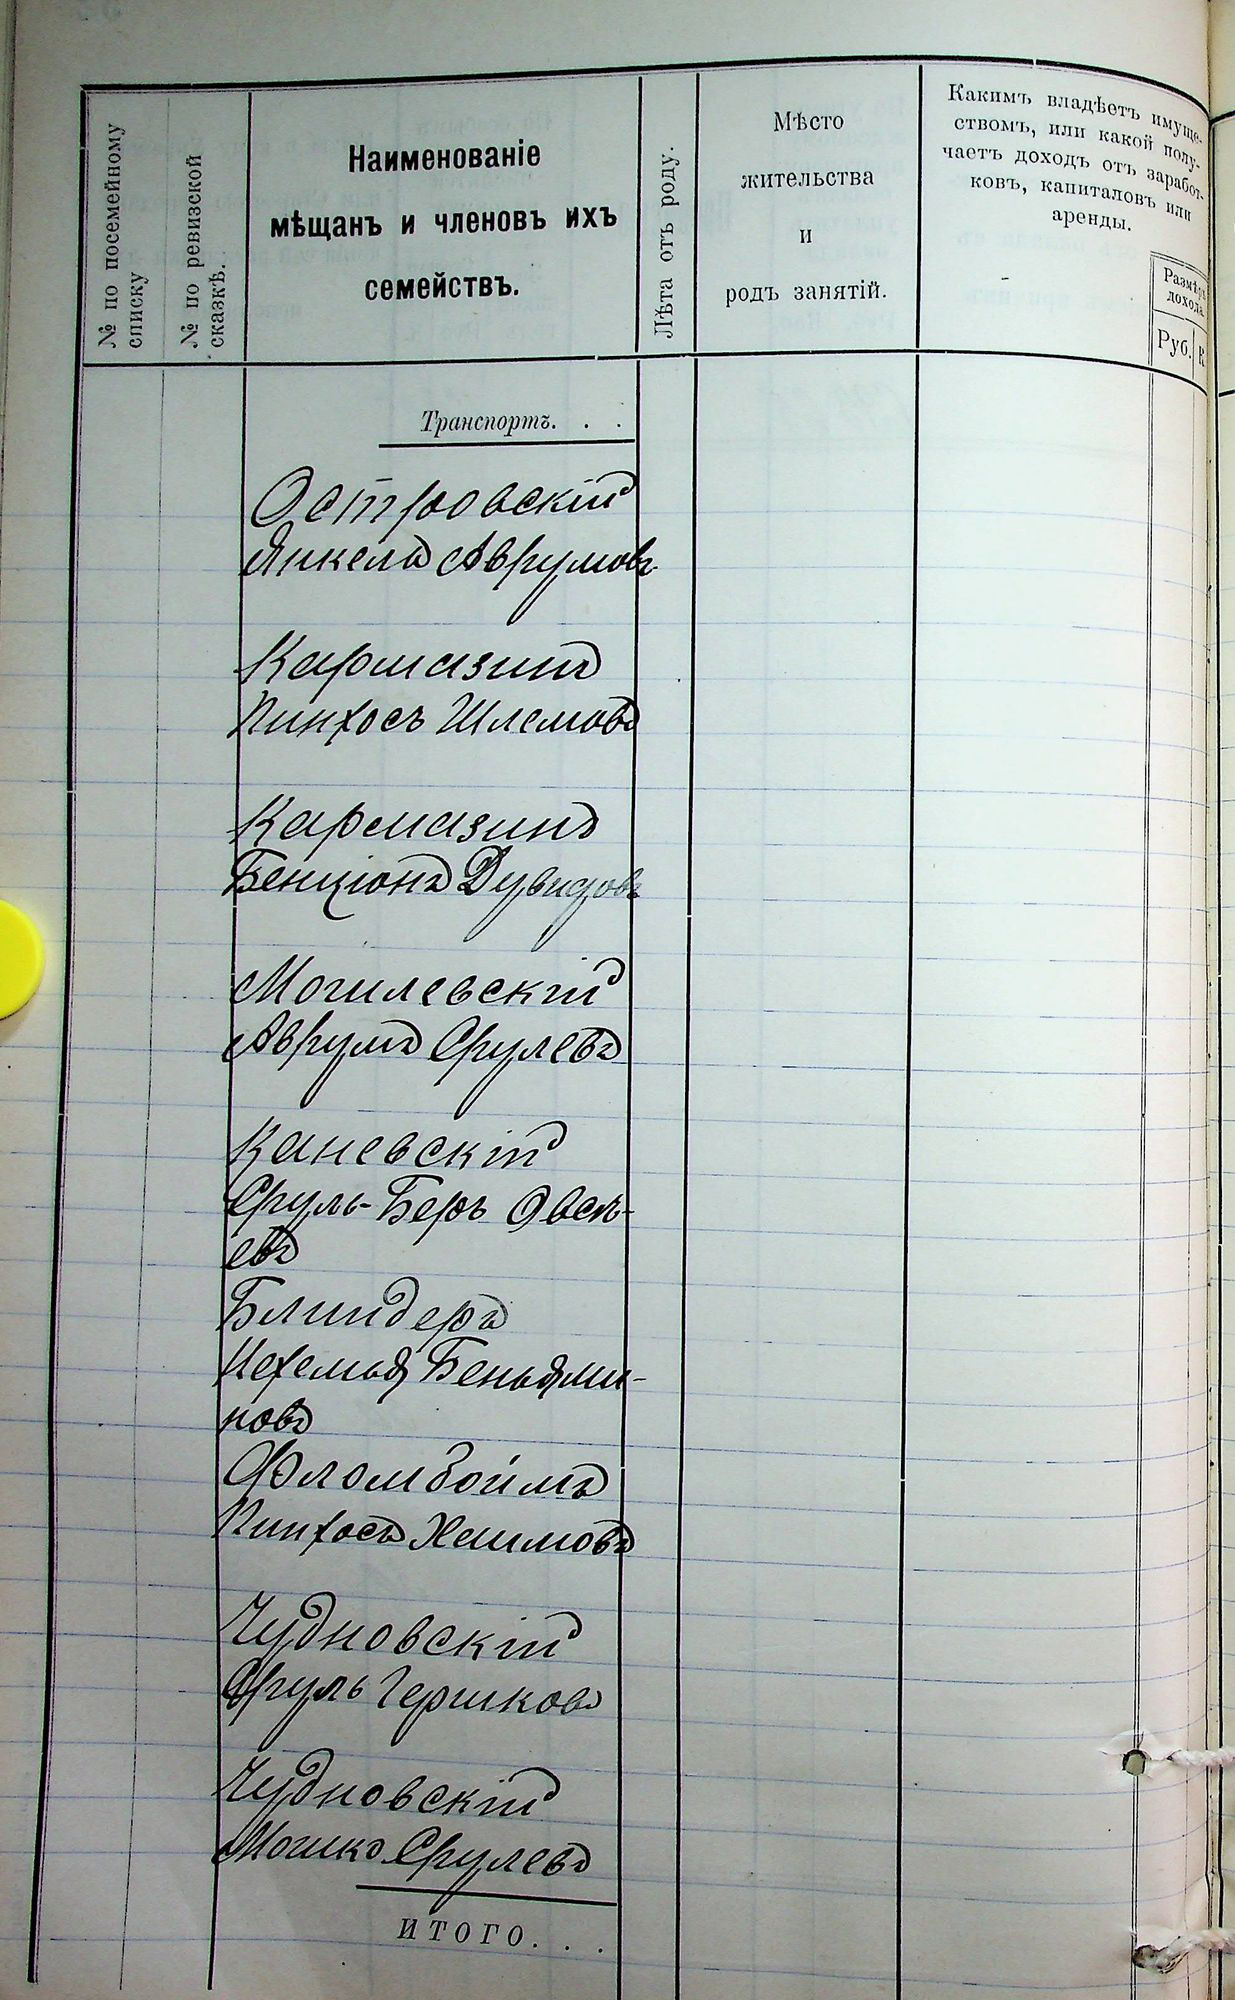 № по посемейному
списку
№ по ревизской
сказкѣ.
Наименованіе
мѣщанъ и членовъ ихъ
семействъ.
Лѣта отъ роду.
Мѣсто
жительства
и
родъ занятій.
Какимъ владѣетъ имуще-
ствомъ, или какой полу-
чаетъ доходъ отъ заработ-
ковъ, капиталовъ или
аренды.
Размѣръ
дохода
Руб.
К
Транспортъ. . .
Островскій
Янкель Аврумовъ
Кармазинъ
Пинхосъ Шлемовъ
Кармазинъ
Бенціонъ Дувидовъ
Могилевскій
Аврумъ Срулевъ
Каневскій
Сруль-Беръ Овсѣ-
евъ
Блиндеръ
Нехемья Беньями-
новъ
Фломбоймъ
Пинхосъ Хаимовъ
Чудновскій
Сруль Гершковъ
Чудновскій
Мошко Срулевъ
ИТОГО. . .